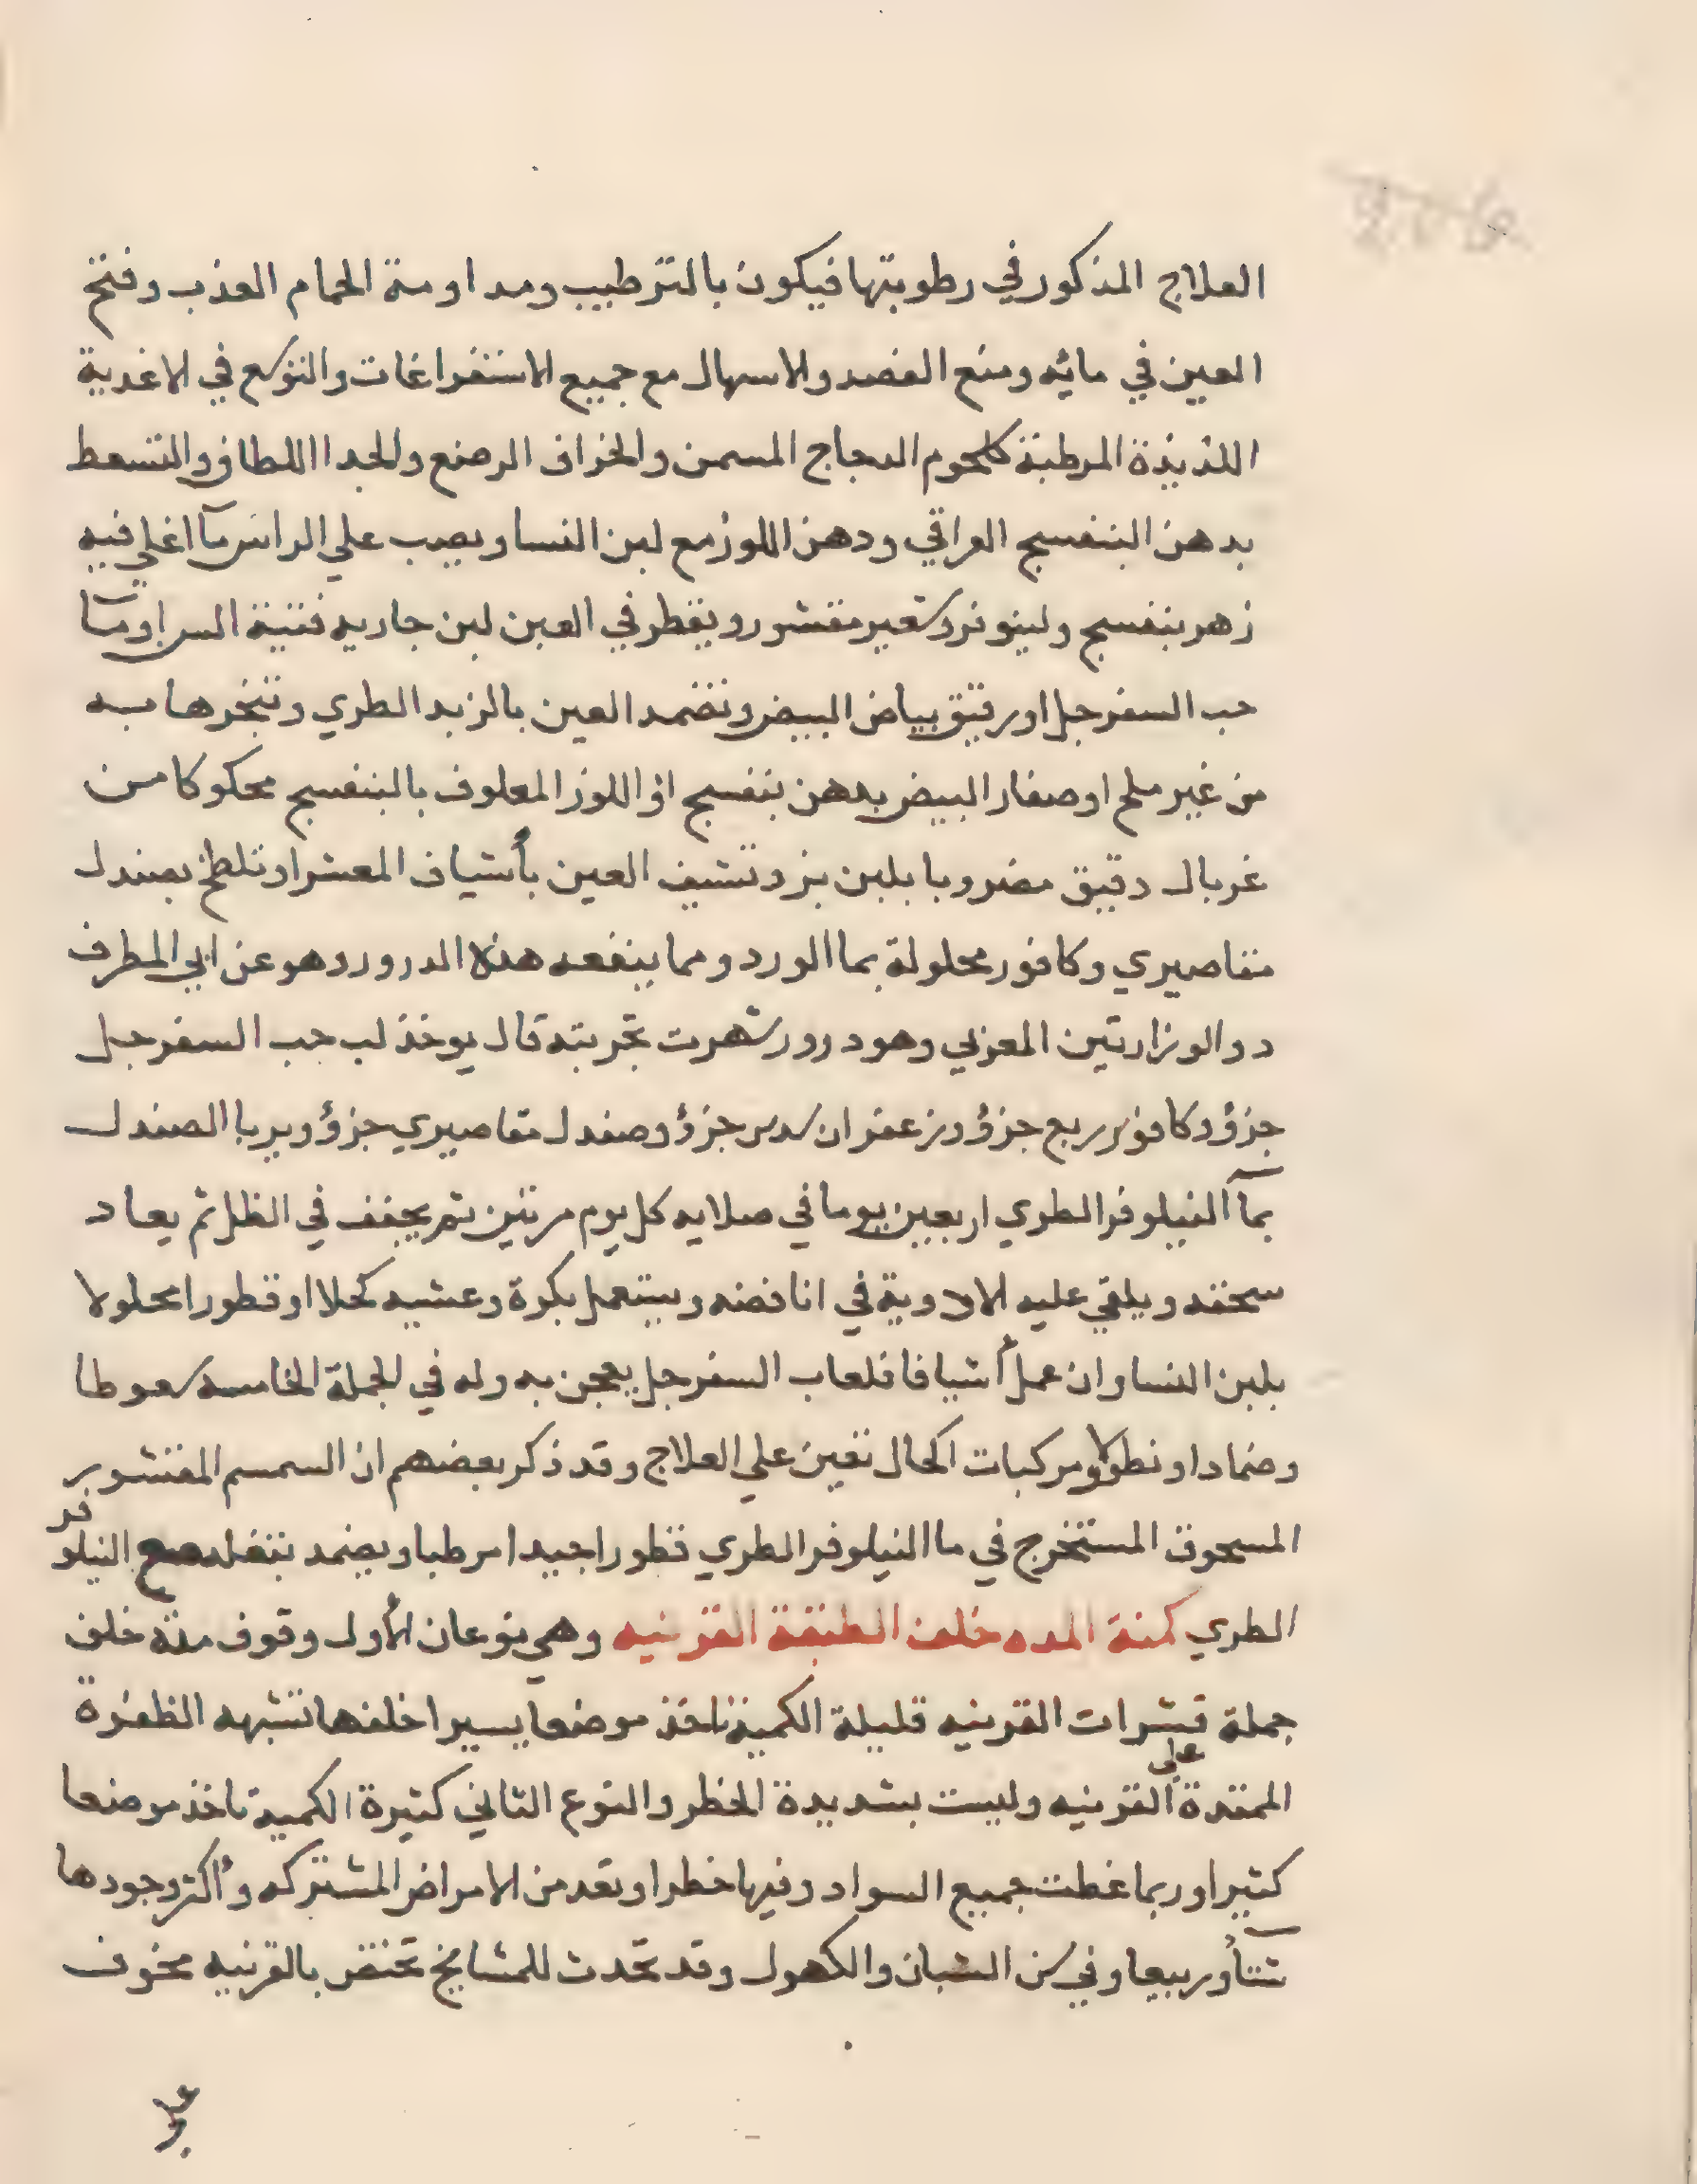 العلاج المذكور في رطوبتها فيكون بالترطيب ومداومة الحمام العذب وفتح
العين في مائه ومنع الفصد والاسهال مع جميع الاستفراغات والتوسع في الاغدية
اللذيذة المرطبة كلحوم الدجاج المسمن والخراف الرضع والجدا اللطاف والتسعط
بدهن البنفسج العراقي ودهن اللوز مع لبن النسا ويصب علي الراس مآ اغلي فيه
زهر بنفسج ولينوفر وشعير مقشور ويقطر في العين لبن جاريه فتية السن او مآ
حب السفرجل او رقيق بياض البيض وتضمد العين بالزبد الطري وتبخرها به
من غير ملح او صفار البيض بدهن بنفسج او اللوز المعلوف بالبنفسج محكوكا من
غربال دقيق مضروبا بلبن بز وتشيف العين بأشياف المعشرا وتلطخ بصندل
مقاصيري وكافور محلولة بما الورد ومما ينفعه هذا الدرور وهو عن ابي المطرف
دو الوزارتين المغربي وهو درور شهرت تجربته قال يوخذ لب حب السفرجل
جزؤ وكافور ربع جزؤ وزعفران سدس جزؤ وصندل مقاصيري جزؤ ويربا الصندل
بمآ النيلوفر الطري اربعين يوما في صلايه كل يوم مرتين ثم يجفف في الظل ثم يعاد
سحقه ويلقي عليه الادوية في انا فضه ويستعمل بكرة وعشيه كحلا او قطورا محلولا
بلبن النسا وان عمل أشيافا فلعاب السفرجل يعجن به وله في الجملة الخامسة سعوطا
وضمادا ونطولا ومركبات الكحال تعين علي العلاج وقد ذكر بعضهم ان السمسم المقشور
المسحوق المستخرج في ما النيلوفر الطري قطورا جيدا مرطبا ويضمد بتفله مع النيلوفر
الطري كمنة المده خلف الطبقة القرنيه وهي نوعان الأول وقوف مدة خلف
جملة قشرات القرنيه قليلة الكمية تاخذ موضعا يسيرا خلفها تشبه الظفرة
الممتدة على القرنيه وليست بشديدة الخطر والنوع الثاني كثيرة الكمية تاخذ موضعا
كثيرا وربما غطت جميع السواد وفيها خطرا وتعد من الامراض المشتركه وأكثر وجودها
شتآ وربيعا وفي سن الشبان والكهول وقد تحدث للمشايخ تختص بالقرنيه مخوف